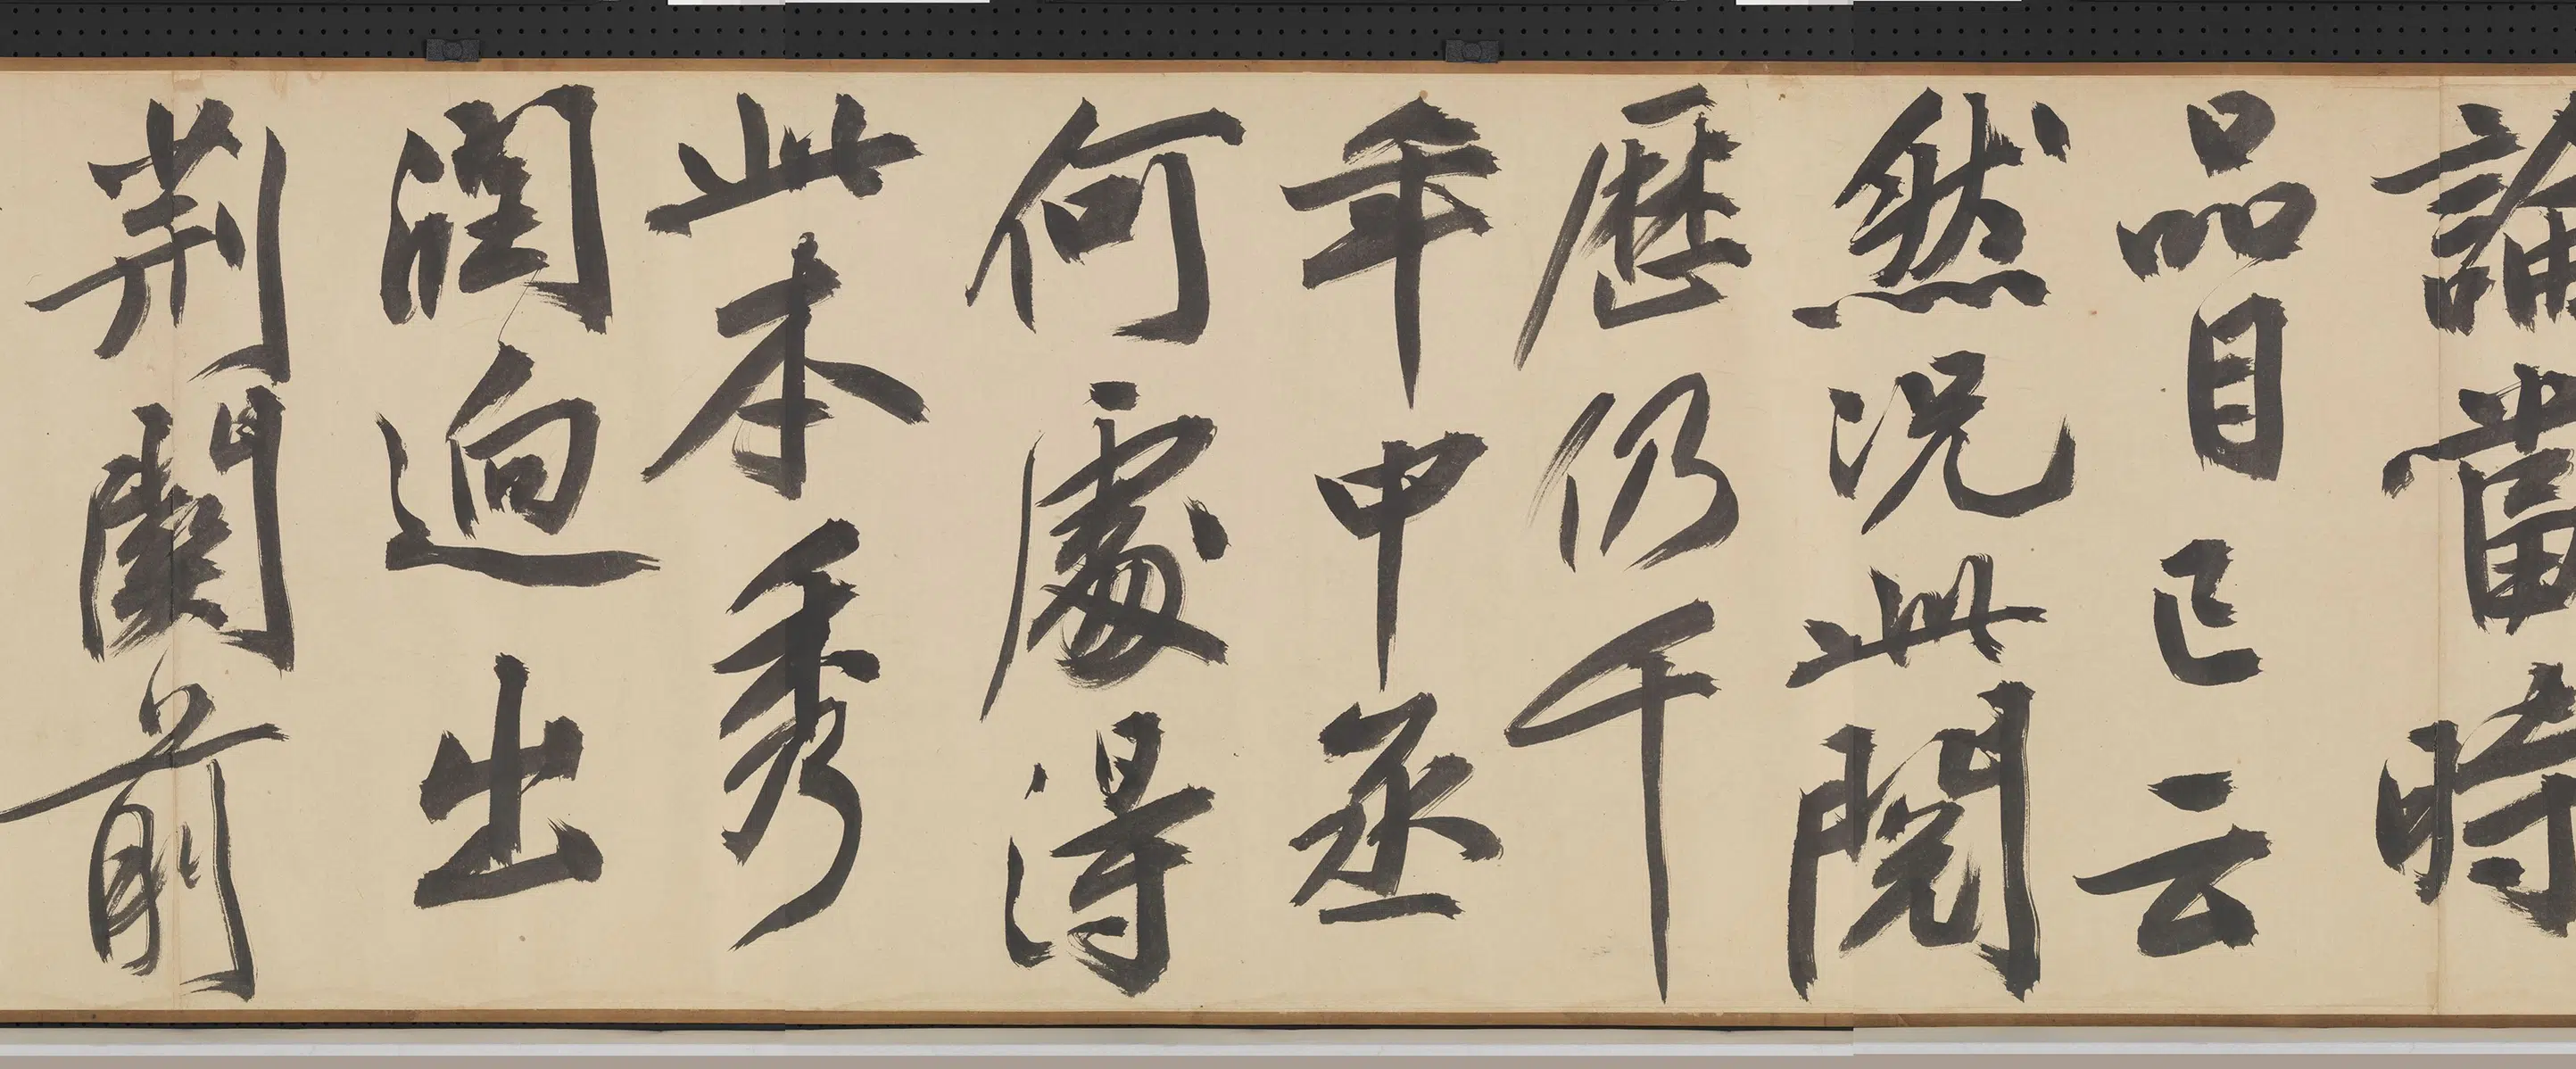 論當時
品目已云
然況此閱
歷仍千
年中丞
何處得
此本秀
潤迥出
荊關前